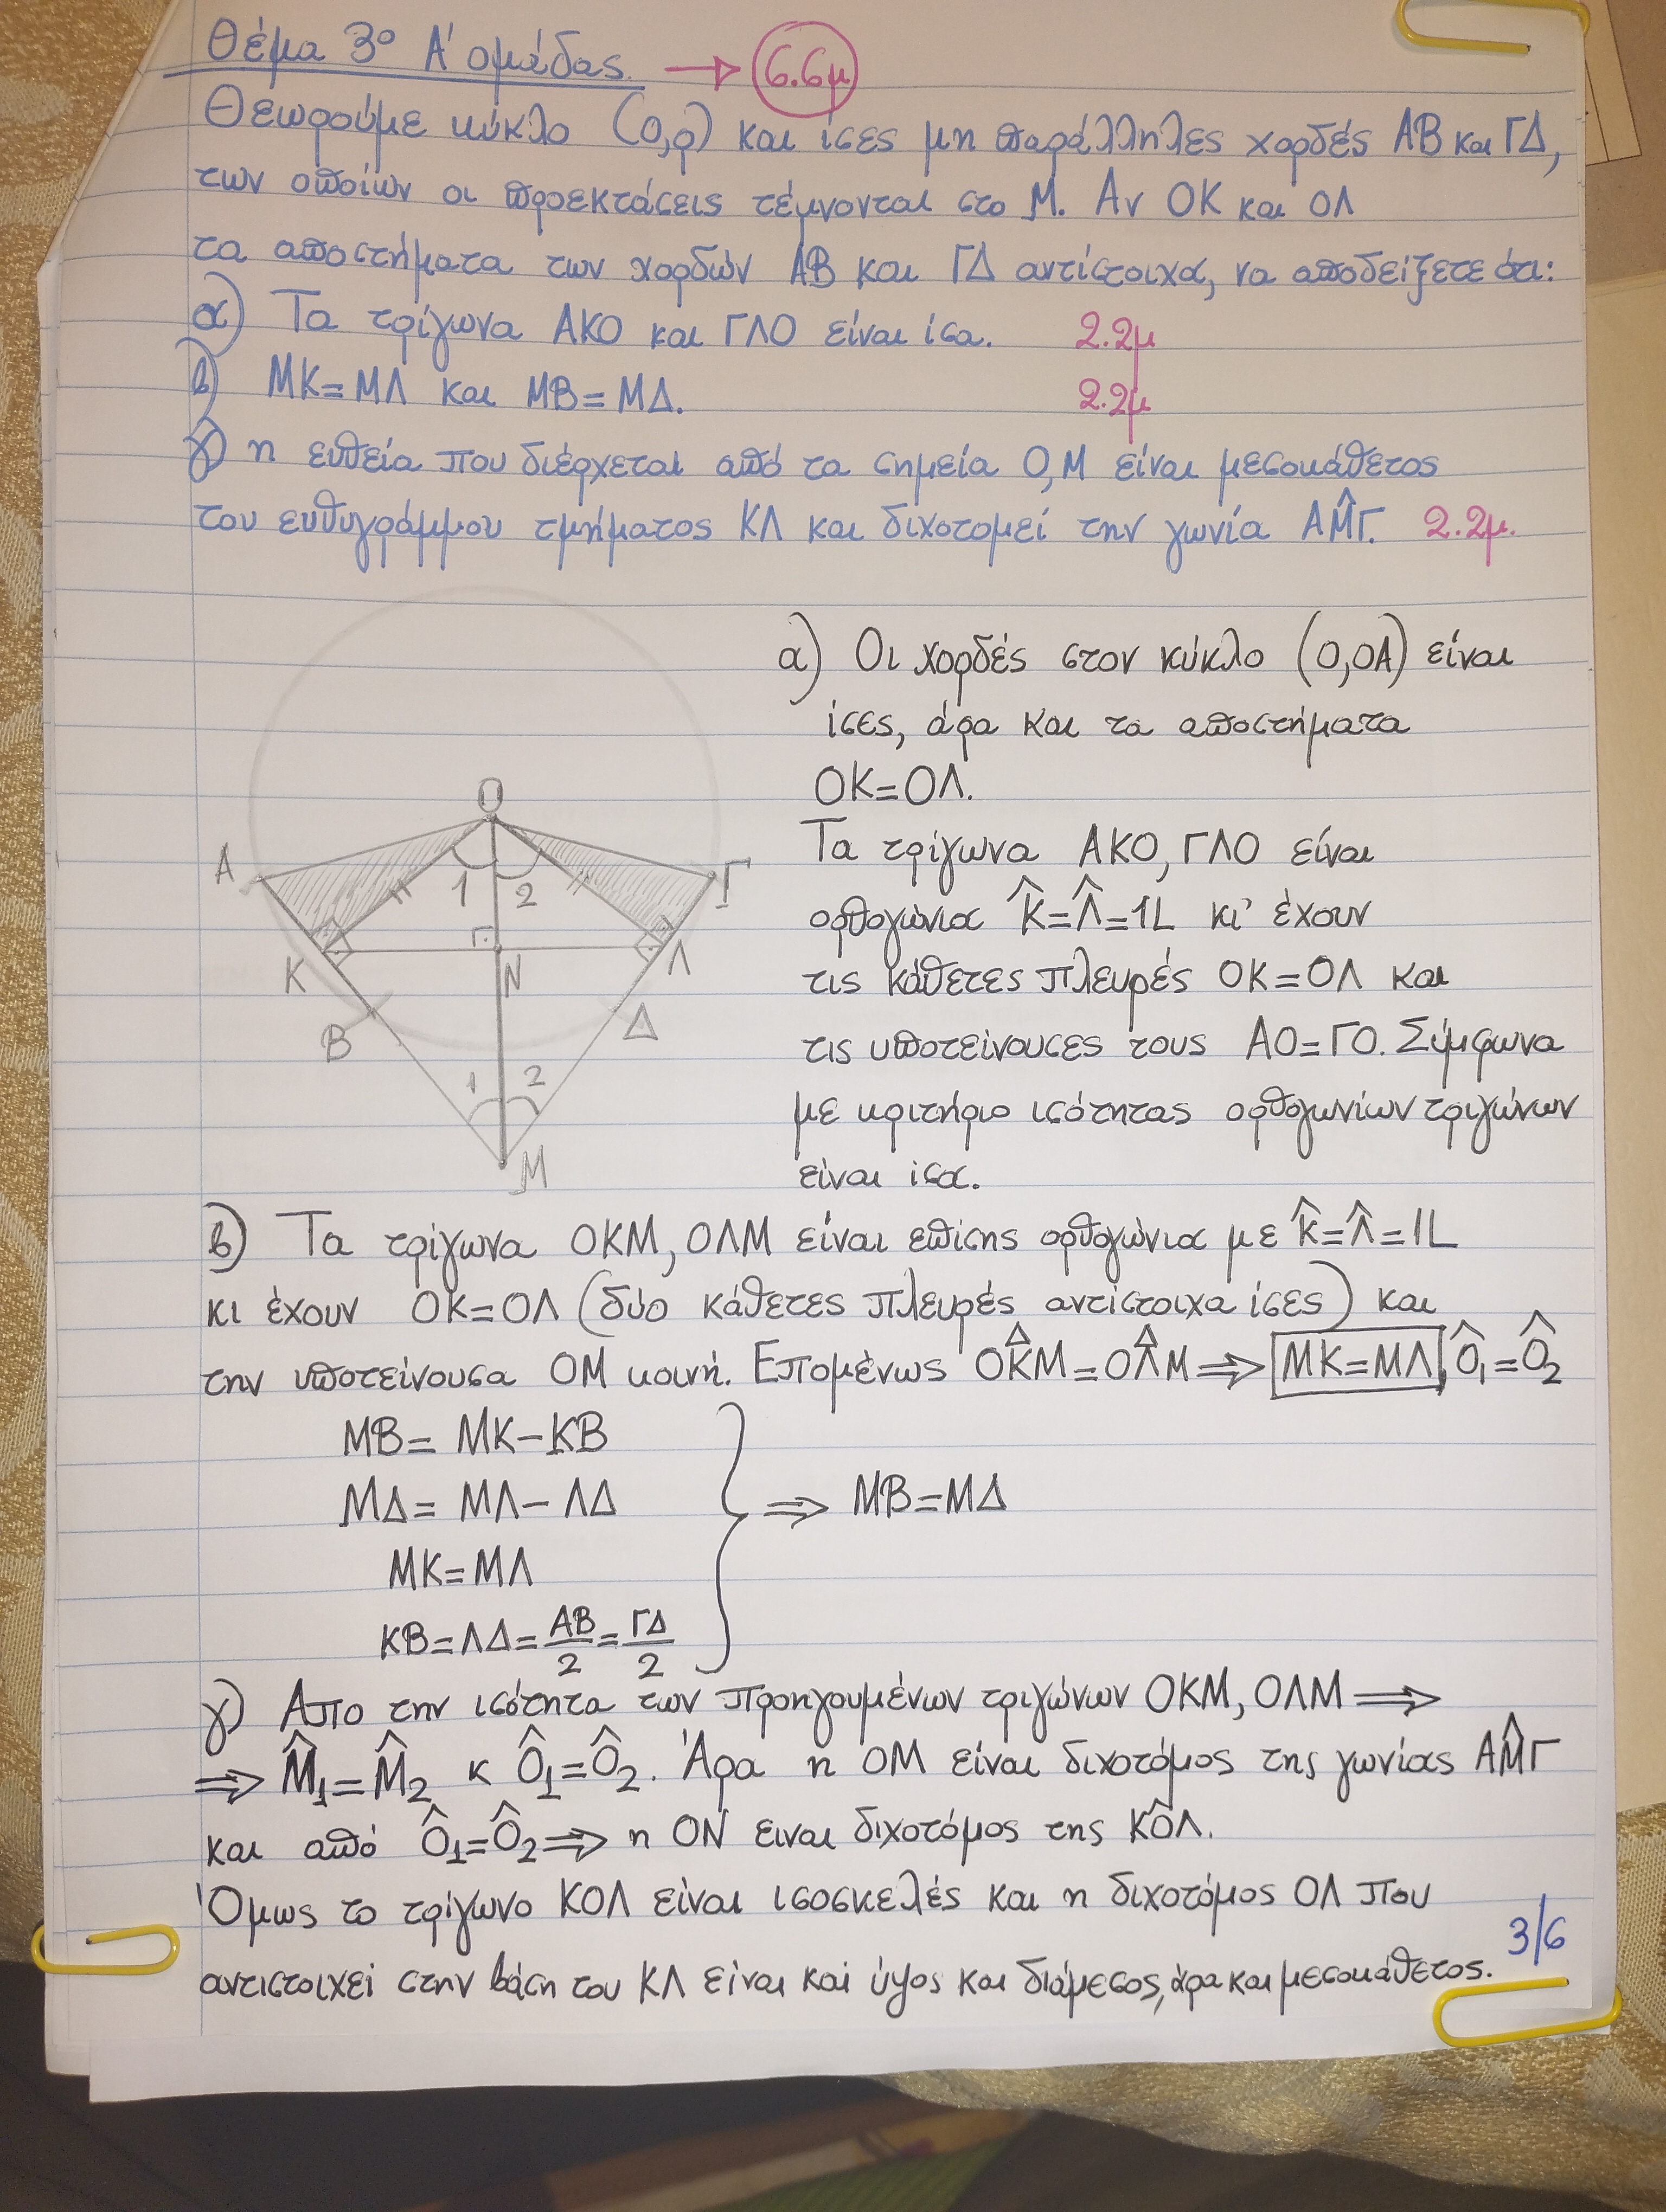 Θέμα 3ο Α' ομάδας. → 6.6μ
Θεωρούμε κύκλο (Ο,ρ) και ίσες μη παράλληλες χορδές ΑΒ και ΓΔ,
των οποίων οι προεκτάσεις τέμνονται στο Μ. Αν ΟΚ και ΟΛ
τα αποστήματα των χορδών ΑΒ και ΓΔ αντίστοιχα, να αποδείξετε ότι:
α) Τα τρίγωνα ΑΚΟ και ΓΛΟ είναι ίσα. 2.2μ
β) ΜΚ=ΜΛ και ΜΒ=ΜΔ. 2.2μ
γ) η ευθεία που διέρχεται από τα σημεία Ο,Μ είναι μεσοκάθετος
του ευθυγράμμου τμήματος ΚΛ και διχοτομεί την γωνία ΑM̂Γ. 2.2μ.
Ο
Α
Γ
1 2
Κ
Ν
Λ
Β
Δ
1 2
Μ
α) Οι χορδές στον κύκλο (Ο,ΟΑ) είναι
ίσες, άρα και τα αποστήματα
ΟΚ=ΟΛ.
Τα τρίγωνα ΑΚΟ, ΓΛΟ είναι
ορθογώνια K̂=Λ̂=1L κι' έχουν
τις κάθετες πλευρές ΟΚ=ΟΛ και
τις υποτείνουσες τους ΑΟ=ΓΟ. Σύμφωνα
με κριτήριο ισότητας ορθογωνίων τριγώνων
είναι ίσα.
β) Τα τρίγωνα ΟΚΜ, ΟΛΜ είναι επίσης ορθογώνια με K̂=Λ̂=1L
κι έχουν ΟΚ=ΟΛ (δύο κάθετες πλευρές αντίστοιχα ίσες) και
την υποτείνουσα ΟΜ κοινή. Επομένως ΟΚΜ=ΟΛΜ ⇒ ΜΚ=ΜΛ, Ô1=Ô2
ΜΒ= ΜΚ-ΚΒ
ΜΔ= ΜΛ-ΛΔ ⇒ ΜΒ=ΜΔ
ΜΚ=ΜΛ
ΚΒ=ΛΔ=ΑΒ/2=ΓΔ/2
γ) Απο την ισότητα των προηγουμένων τριγώνων ΟΚΜ, ΟΛΜ ⇒
⇒ M̂1=M̂2 κ Ô1=Ô2. Άρα η ΟΜ είναι διχοτόμος της γωνίας ΑM̂Γ
και από Ô1=Ô2 ⇒ η ΟΝ ειναι διχοτόμος της ΚÔΛ.
Όμως το τρίγωνο ΚΟΛ είναι ισοσκελές και η διχοτόμος ΟΛ που
αντιστοιχεί στην βάση του ΚΛ είναι και ύψος και διάμεσος, άρα και μεσοκάθετος.
3/6